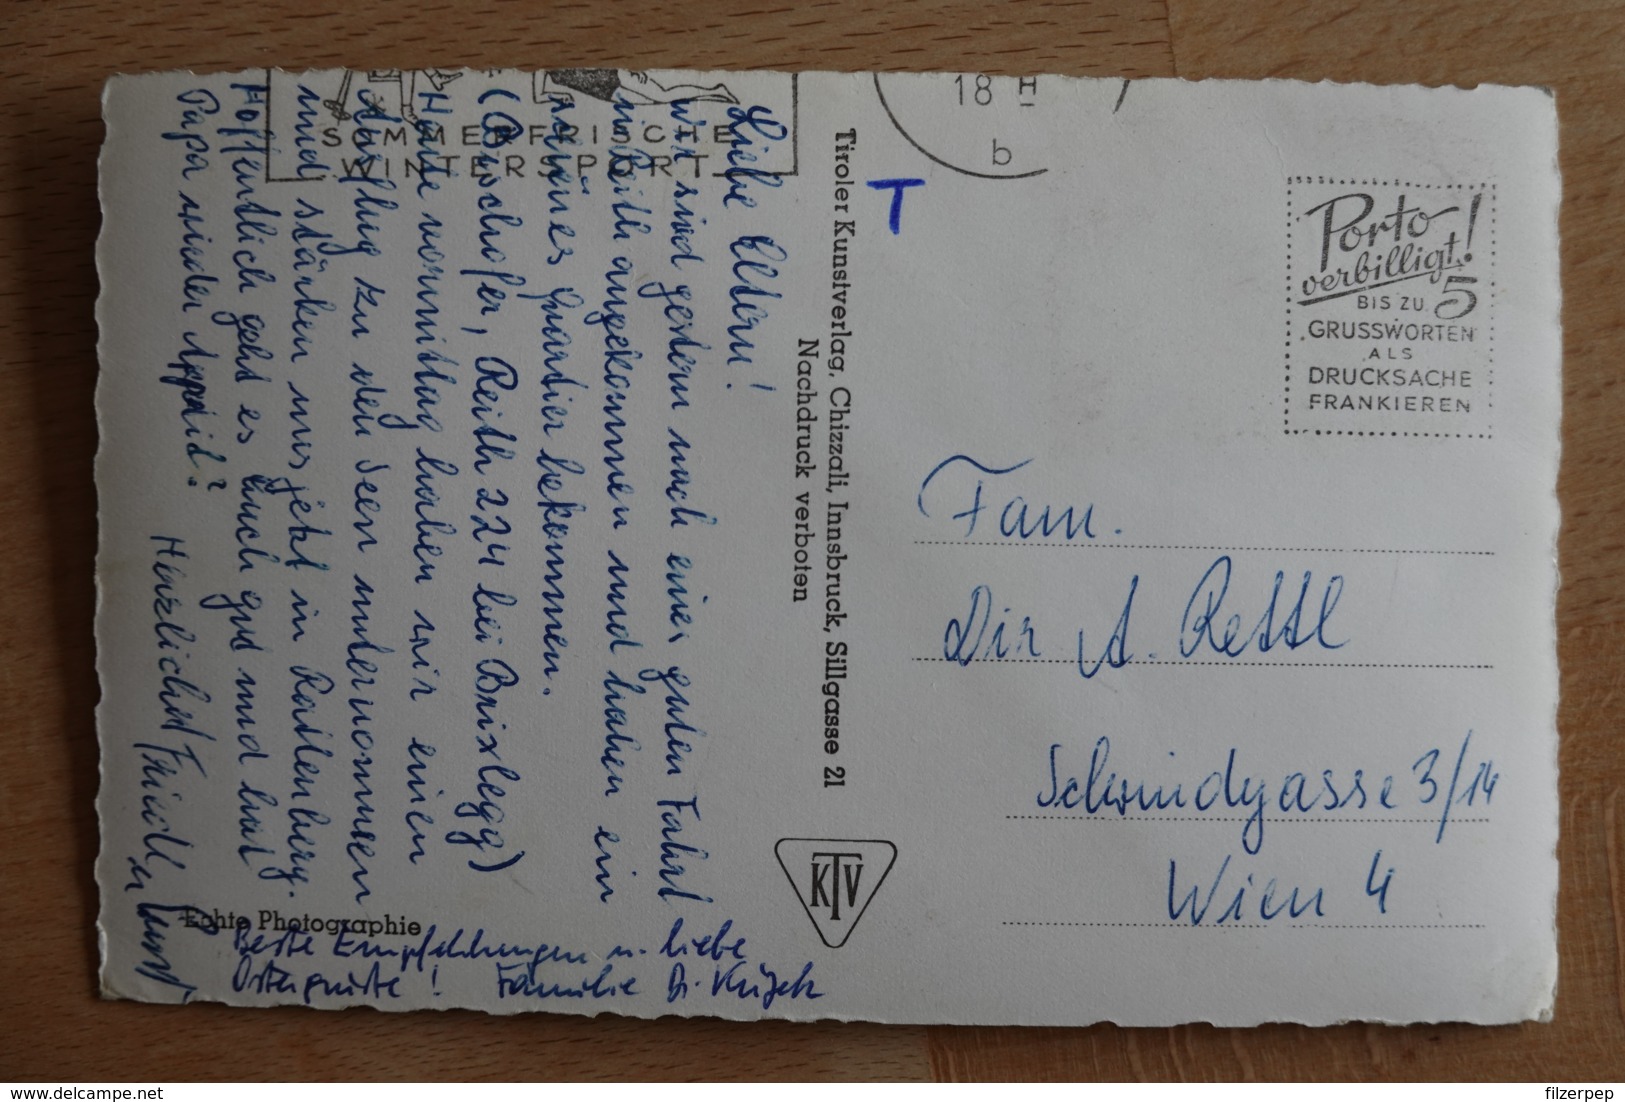 18 H
b
SOMMERFRISCHE
WINTERSPORT
T
Porto
verbilligt!
BIS ZU 5
GRUSSWORTEN
ALS
DRUCKSACHE
FRANKIEREN
Liebe Eltern!
wir sind gestern nach einer guten Fahrt
in Reith angekommen und haben ein
schönes Quartier bekommen.
(Buschofer, Reith 224 bei Brixlegg)
Heute vormittag haben wir einen
Ausflug zu den Seen unternommen
und stärken uns jetzt in Rattenberg.
Hoffentlich geht es Euch gut und hat
Papa wieder Appetit?
Herzlichst Friedl u
Beste Empfehlungen u. liebe
Ostergrüße! Familie Dr.
Echte Photographie
Tiroler Kunstverlag, Chizzali, Innsbruck, Sillgasse 21
Nachdruck verboten
KTV
Fam.
Dir A. Rettl
Schwindgasse 3/14
Wien 4
www.delcampe.net
filzerpep